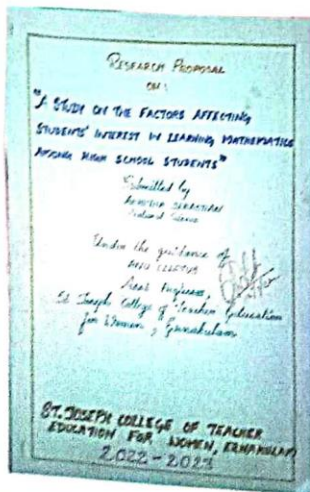 RESEARCH PROPOSAL
ON :
"A STUDY ON THE FACTORS AFFECTING
STUDENTS' INTEREST IN LEARNING MATHEMATICS
AMONG HIGH SCHOOL STUDENTS"
Submitted by
Under the guidance of
St. Joseph College of Teacher Education
for Women, Ernakulam
ST. JOSEPH COLLEGE OF TEACHER
EDUCATION FOR WOMEN, ERNAKULAM
2022-2023